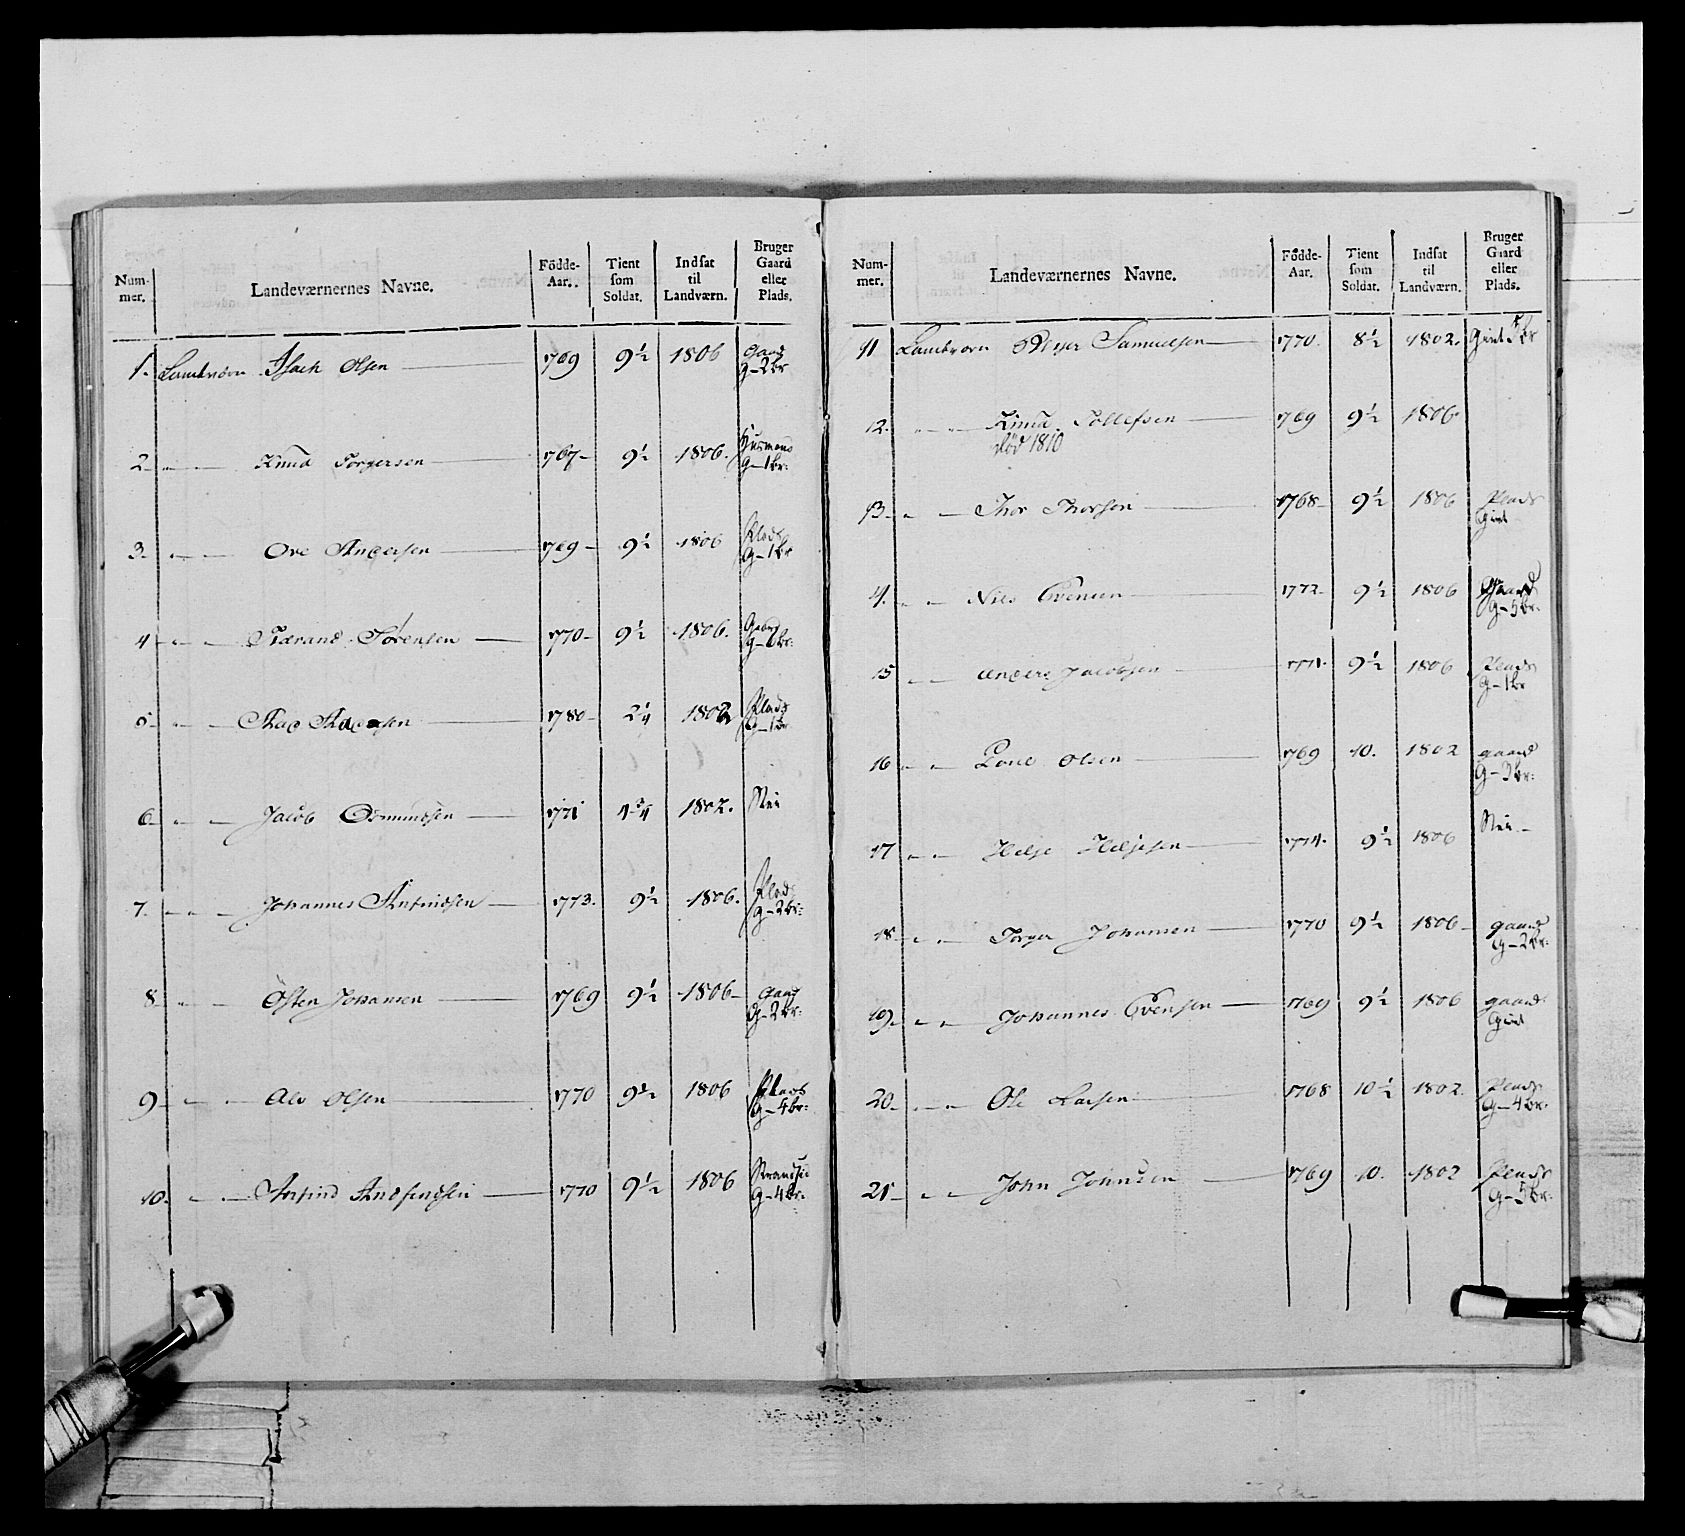 Num-
mer.
Landeværnernes Navne.
Födde-
Aar.
Tient
som
Soldat.
Indsat
til
Landværn.
Bruger
Gaard
eller
Plads.
1. Landværn Isach Olsen 1769 9½ 1806 Gaard
G-2br
2 " Knud Torgersen 1767 9½ 1806. Huusmand
G-1br:
3. " Ove Andersen 1769 9½ 1806 Plads
G-1br
4 " Tiærand Sörensen 1770 9½ 1806.
5 " 1780 2¼ 1802 Plads
G-1br
6 " Jacob Osmundsen 1771 4¾ 1802. Nei
7. " Johannes 1773. 9½ 1806. Plads
G-2br:
8 " Østen Johansen 1769 9½ 1806 Gaard
G-2br:
9 " Alv Olsen 1770 9½ 1806 Plads
G-4br:
10. " 1770 9½ 1806
G-4br:
Num-
mer.
Landeværnernes Navne.
Födde-
Aar.
Tient
som
Soldat.
Indsat
til
Landværn.
Bruger
Gaard
eller
Plads.
11 Landværn Samuelsen 1770. 8½ 1802. Givt br
12. " Knud Tollefsen 1769 9½ 1806
död 1810
13 " Thor Thorsen 1768 9½ 1806 Plads
Givt
14. " Nils Evensen 1772 9½ 1806 Gaard
G-5br:
15 " Anders Jacobsen 1771. 9½ 1806 Plads
G-1br
16 " Poul Olsen 1769 10. 1802 gaard
G-3br:
17 " Helje Heljesen 1774. 9½ 1806 Nei
18 " Torger Johansen 1770 9½ 1806 gaard
G-2br:
19 " Johannes Evensen 1769 9½ 1806 gaard
Givt
20 " Ole Larsen 1768 10½ 1802. Plads
G-4br:
21 " John Johnsen 1769 10. 1802 Plads
G-5br: